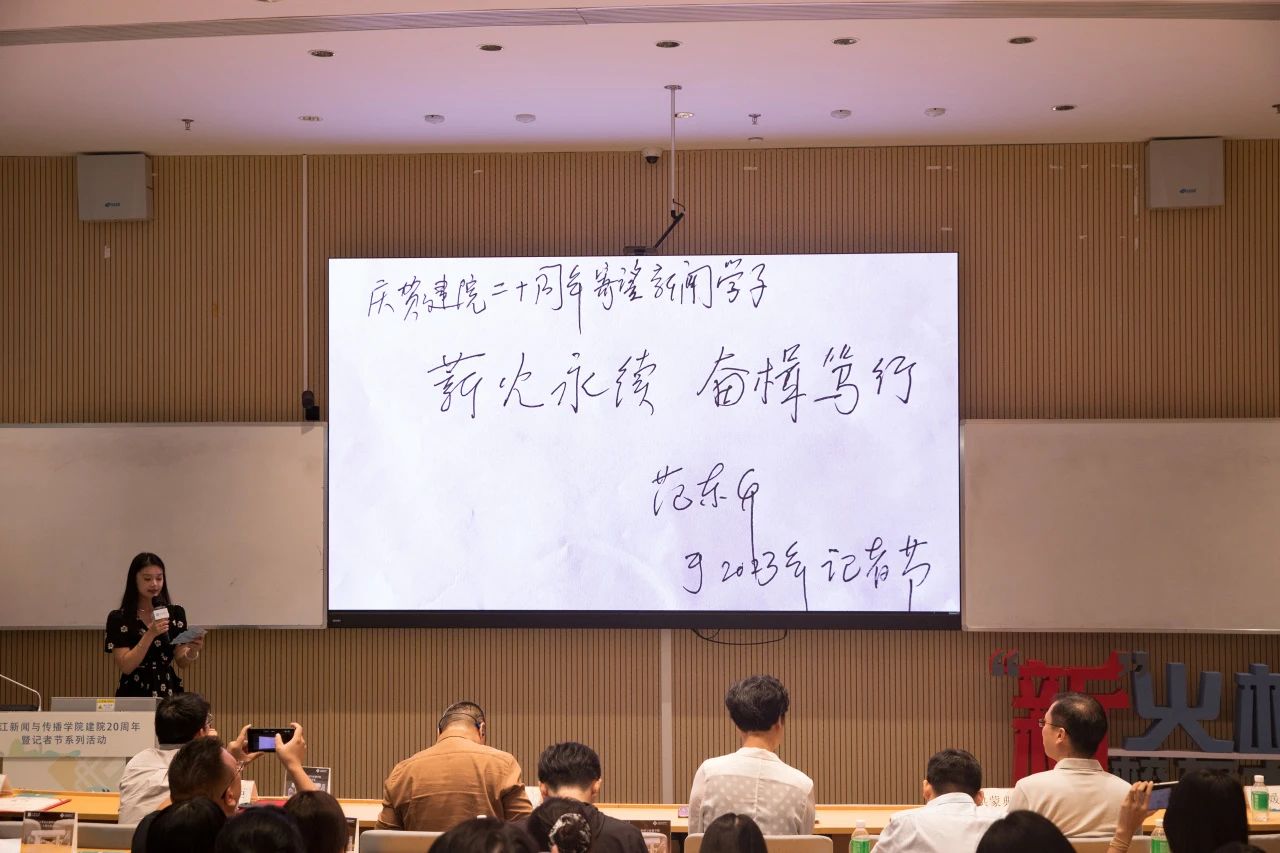 庆贺建院二十周年寄望新闻学子
薪火永续 奋楫笃行
范东升
于2023年记者节
江新闻与传播学院建院20周年
暨记者节系列活动
“新”火相